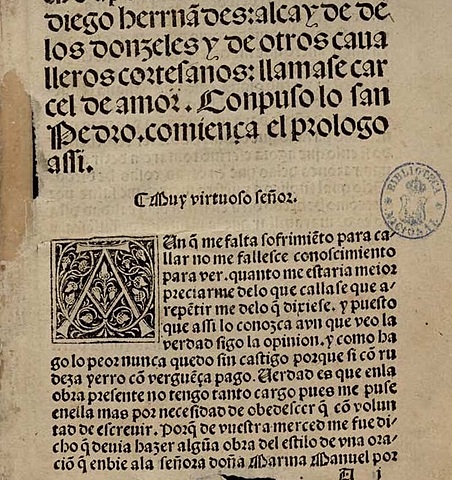 diego herrnãdes: alcayde de
los donzeles y de otros caua
lleros cortesanos: llamase car
cel de amor. Conpuso lo san
Pedro. comiença el prologo
assi.
❡Muy virtuoso señor.
AUn q̃ me falta sofrimiẽto para ca-
llar no me fallesce conoscimiento
para ver. quanto me estaria meior
preciarme delo que callase que a-
repẽtir me delo q̃ dixiese. y puesto
que assi lo conozca avn que veo la
verdad sigo la opinion. y como ha
go lo peor nunca quedo sin castigo porque si cõ ru
deza yerro cõ verguẽça pago. Uerdad es que enla
obra presente no tengo tanto cargo pues me puse
enella mas por necesidad de obedescer q̃ cõ volun
tad de escreuir. Porq̃ de vuestra merced me fue di-
cho q̃ deuia hazer algũa obra del estilo de vna ora-
ciõ q̃ enbie ala señora doña Marina Manuel por
BIBLIOTECA NACIONAL